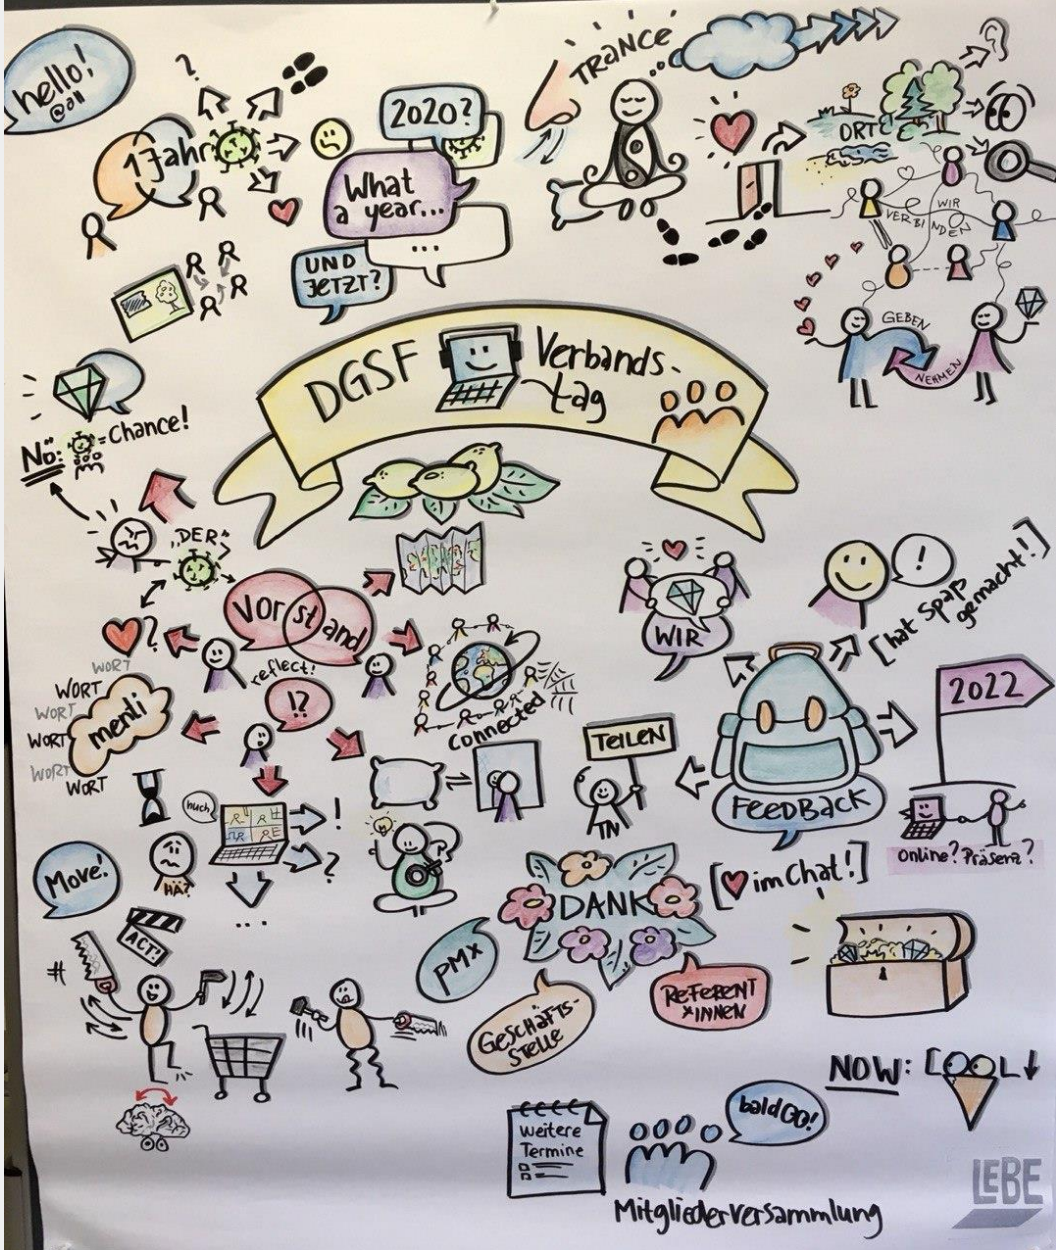 hello!
@all
?
1 Jahr
2020?
What
a year...
...
UND
JETZT?
TRANCE
ORTE
WIR
VERBINDEN
GEBEN
NEHMEN
DGSF
Verbands-
tag
Nö: = Chance!
"DER"
Vorstand
reflect!
!?
?
WORT
WORT
WORT
WORT
WORT
WORT
menti
connected
WIR
!
[hat Spaß
gemacht!]
2022
TEILEN
TN
FEEDBACK
online? Präsenz?
[♥ im Chat!]
huch
!
?
...
HÄ?
Move!
ACT!
#
?
DANK
PMX
GESCHÄFTS-
STELLE
REFERENT
*INNEN
NOW: COOL↓
weitere
Termine
bald GO!
Mitgliederversammlung
LEBE